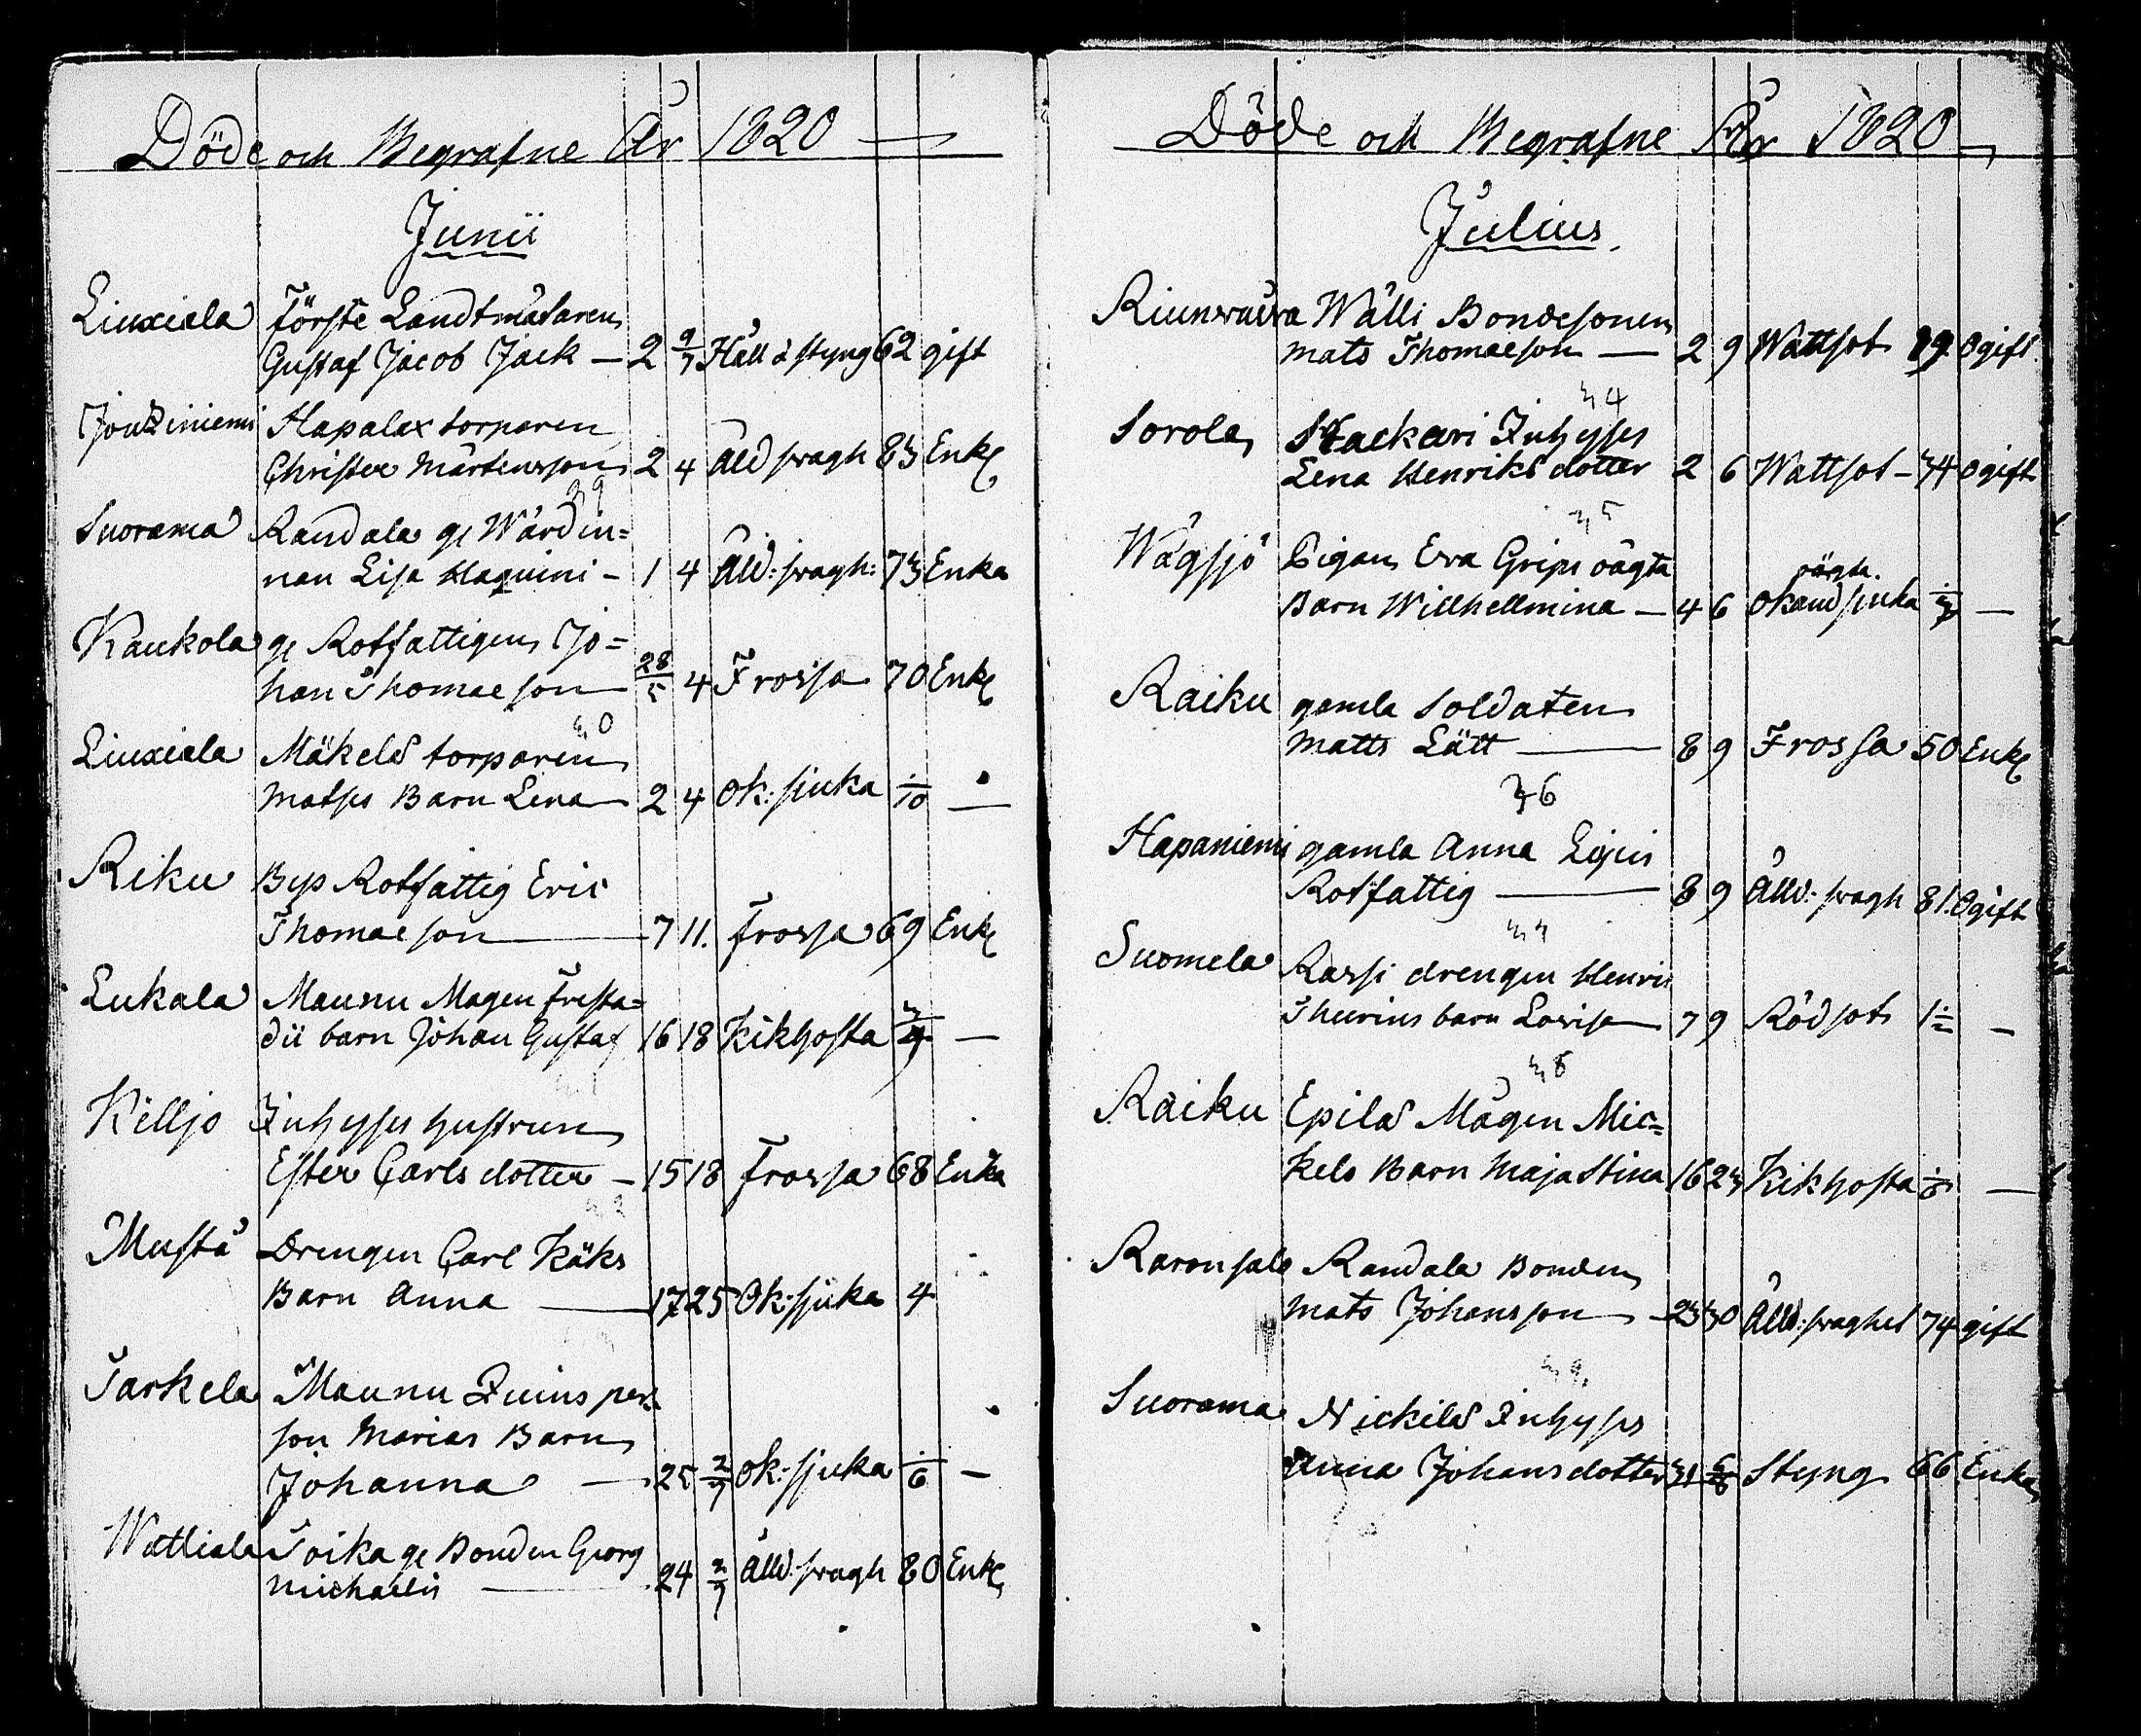 Döde och Begrafne År 1820
Junii
Liuxiala Förste Landtmätaren
Gustaf Jacob Jack — 2 9/7 Håll & styng 62 gift
Jouziniemi Hapalax torparen
Christer Mårtensson 2 4 Åld svagh 83 Enkl
29
Suorama Randala gl Wärdin=
nan Lisa Haquini — 1 4 Åld: svagh: 73 Enka
Kaukola gl Rotfattigen Jo=
han Thomae son 28/5 4 Frossa 70 Enkl
30
Liuxiala Mäkelä torparen
Matss Barn Lena 2 4 Ok: sjuka 1/10 —
Riku Bys Rotfattig Eric
Thomae son — 7 11. Frossa 69 Enkl
Lukala Maunu Magen Fresta=
dii barn Johan Gustaf 16 18 Kikhosta 3/4 —
Killjo Inhyses hustrun
Ester Carls dotter — 15 18 Frossa 68 Enka
Mustá Drengen Carl Käks
Barn Anna — 17 25 Ok: sjuka 4
Tarkela Maunu Quins per
son Marias Barn
Johanna — 25 2/7 Ok: sjuka 1/6 —
Wattiala Toika gl Bonden Georg
Michaelis — 24 2/7 Ålld: svagh 80 Enkl
Döde och Begrafne År 1820
Julius
Riunvaivra Wälli Bondesonen
Mats Thomaeson — 2 9 Wattsot 19 Ogift
34
Sorola Stackari Inhyses
Lena Henriks dotter 2 6 Wattsot — 34 Ogift
35
Wägsjö Pigan Eva Grips oägta
oägta.
Barn Willhellmina — 4 6 Okand sjuka —
Raiku gamla Soldaten
Matts Lätt — 8 9 Frossa 50 Enkl
36
Hapaniemi gamla Anna
Rotfattig — 8 9 Ålld: svagh 81. Ogift
37
Suomela Rassi drengen Henric
Thurins barn Lovisa 7 9 Rödsot 1 1/2 —
38
Raiku Epilä Mågen Mic=
kels Barn Maja Stina 16 23 Kikhosta 1/6 —
Raronsalo Randala Bonden
Mats Johansson — 23 30 Ålld: svaghet 74 gift
39.
Suorama Nickilä Inhyses
Anna Johans dotter 31 6/8 Styng 66 Enka